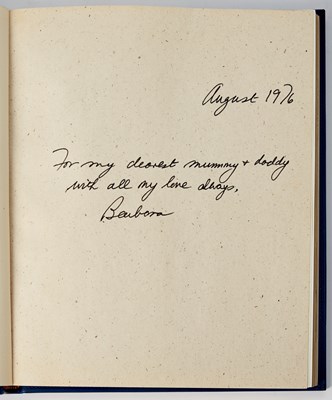 August 1976
For my dearest mummy + daddy
with all my love always,
Barbara